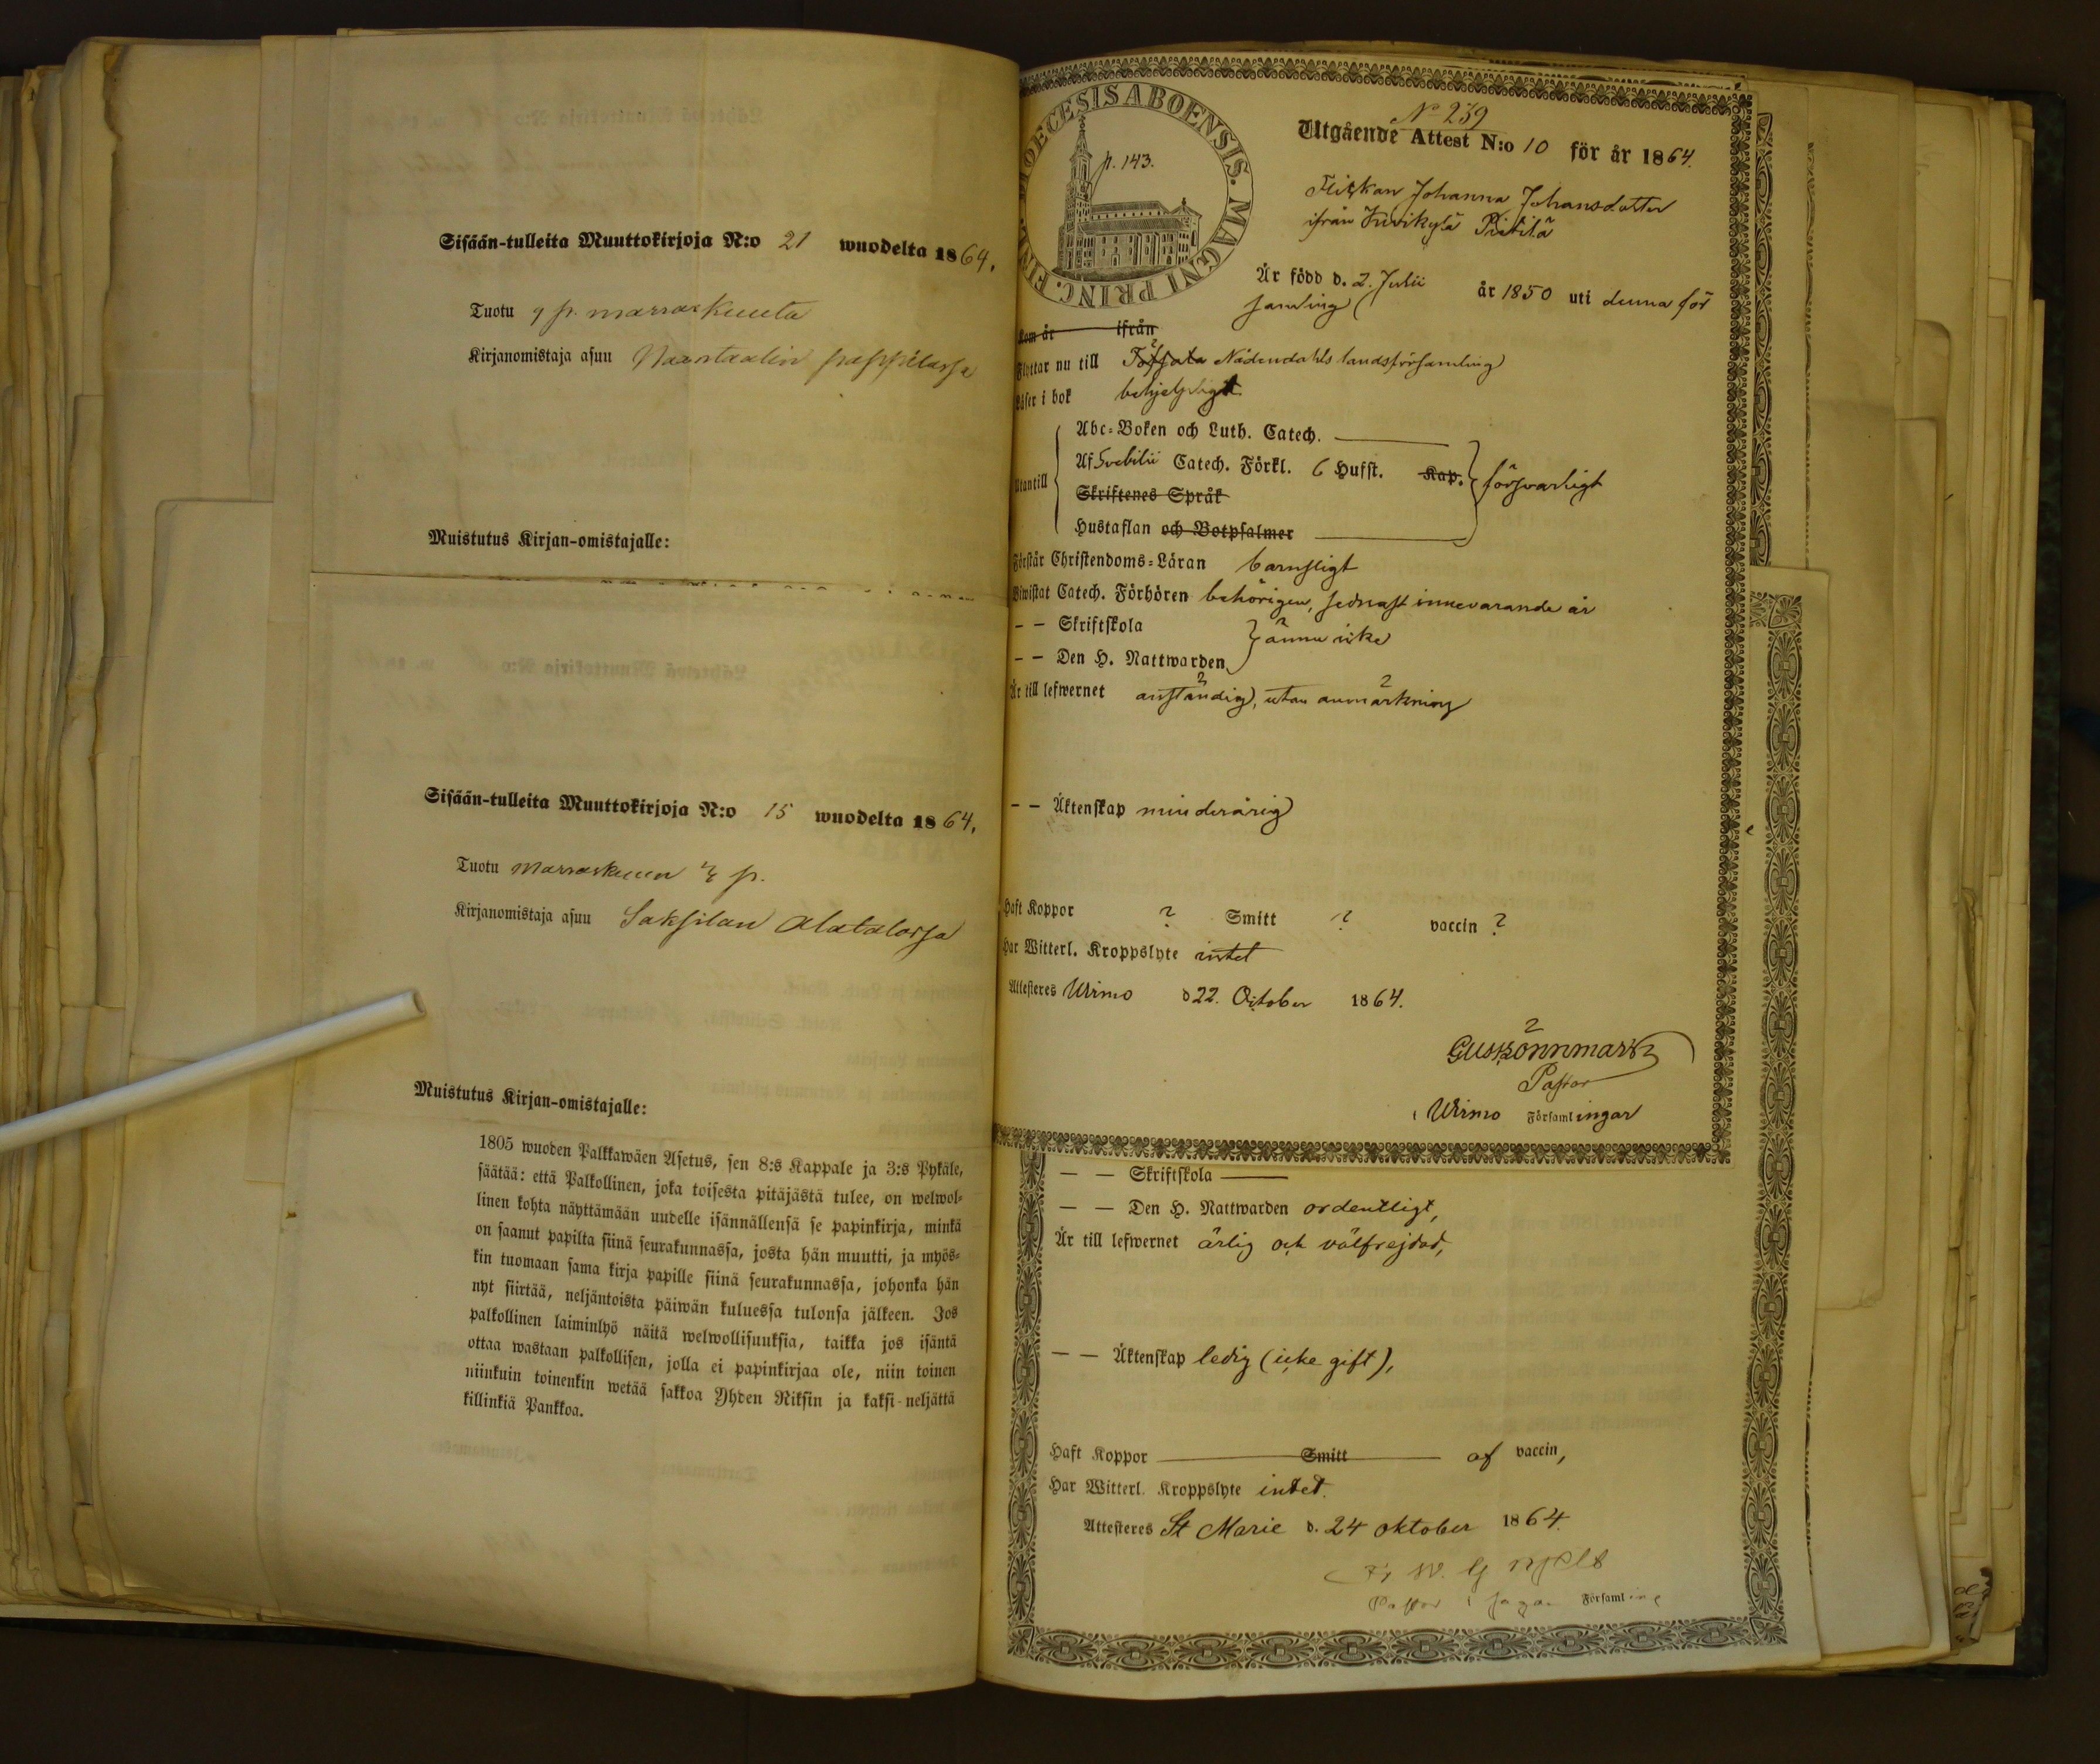 Sisään-tulleita Muuttokirjoja N:o 21 wuodelta 1864.
Tuotu 9 p. marraskuuta
Kirjanomistaja asuu Naantaalin pappilassa
Muistutus Kirjan-omistajalle:
Sisään-tulleita Muuttokirjoja N:o 15 wuodelta 1864.
Tuotu marraskuun p.
Kirjanomistaja asuu Saksilan Alatalossa
Muistutus Kirjan-omistajalle:
1805 wuoden Palkkawäen Asetus, sen 8:s Kappale ja 3:s Pykäle,
säätää: että Palkollinen, joka toisesta pitäjästä tulee, on welwol-
linen kohta näyttämään uudelle isännällensä se papinkirja, minkä
on saanut papilta siinä seurakunnassa, josta hän muutti, ja myös-
kin tuomaan sama kirja papille siinä seurakunnassa, johonka hän
nyt siirtää, neljäntoista päiwän kuluessa tulonsa jälkeen. Jos
palkollinen laiminlyö näitä welwollisuuksia, taikka jos isäntä
ottaa wastaan palkollisen, jolla ei papinkirjaa ole, niin toinen
niinkuin toinenkin wetää sakkoa Yhden Riksin ja kaksi-neljättä
killinkiä Pankkoa.
DIOECESIS ABOENSIS. MAGNI PRINC. FINL.
p. 143.
No 239
Utgående Attest N:o 10 för år 1864.
Flickan Johanna Johansdotter
ifrån Pietilä
Är född d. 2. Julii år 1850 uti denna för
samling
Kom år ifrån
Flyttar nu till Nådendahls landsförsamling
Läser i bok behjelpligt
Abc-Boken och Luth. Catech.
Utantill Af Svebilii Catech. Förkl. 6 Hufst. Kap. försvarligt
Skriftenes Språk
Hustaflan och Botpsalmer
Förstår Christendoms-Läran barnsligt
Biwistat Catech. Förhören behörigen, sednast innevarande år
— — Skriftskola
ännu icke
— — Den H. Nattwarden
Är till lefwernet anständig, utan anmärkning
— — Äktenskap minderårig
Haft Koppor ? Smitt ? vaccin ?
Har Witterl. Kroppslyte intet
Attesteres Wirmo d 22. October 1864.
Pastor
i Wirmo Församlingar
— — Skriftskola
— — Den H. Nattwarden ordentligt,
Är till lefwernet ärlig och välfrejdad,
— — Äktenskap ledig (icke gift),
Haft Koppor Smitt af vaccin,
Har Witterl. Kroppslyte intet.
Attesteres St Marie d. 24 oktober 1864.
Pastor i Församling